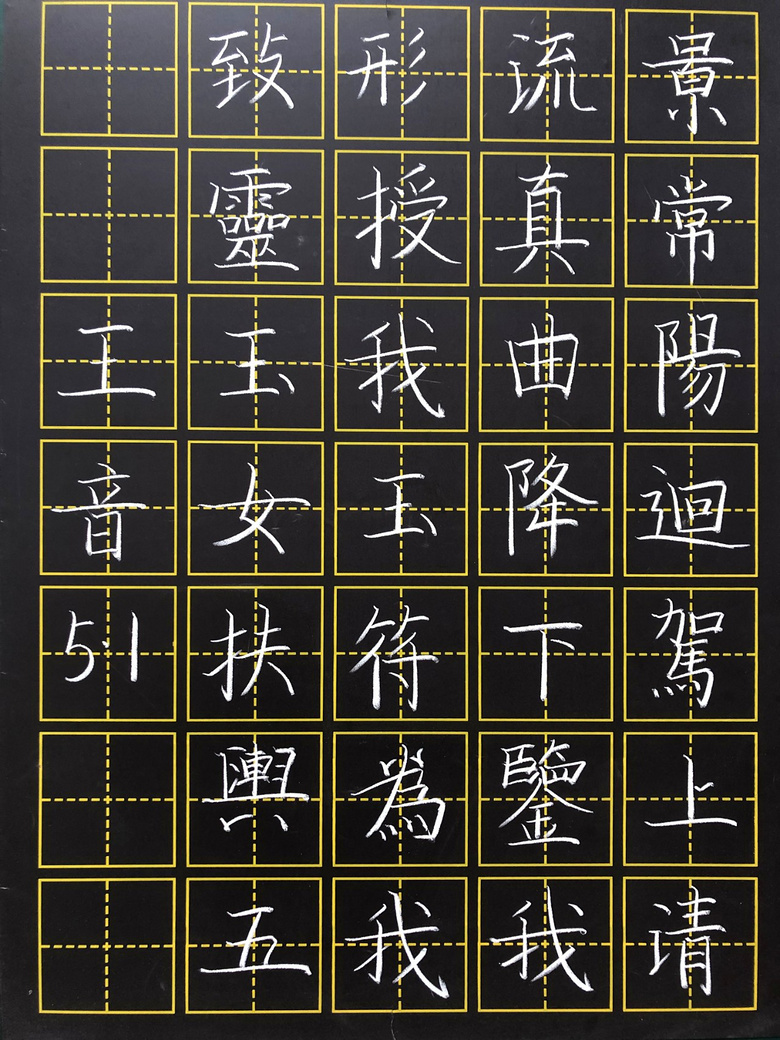 景常陽迴駕上清
流真曲降下鑒我
形授我玉符為我
致靈玉女扶輿五
王音5·1